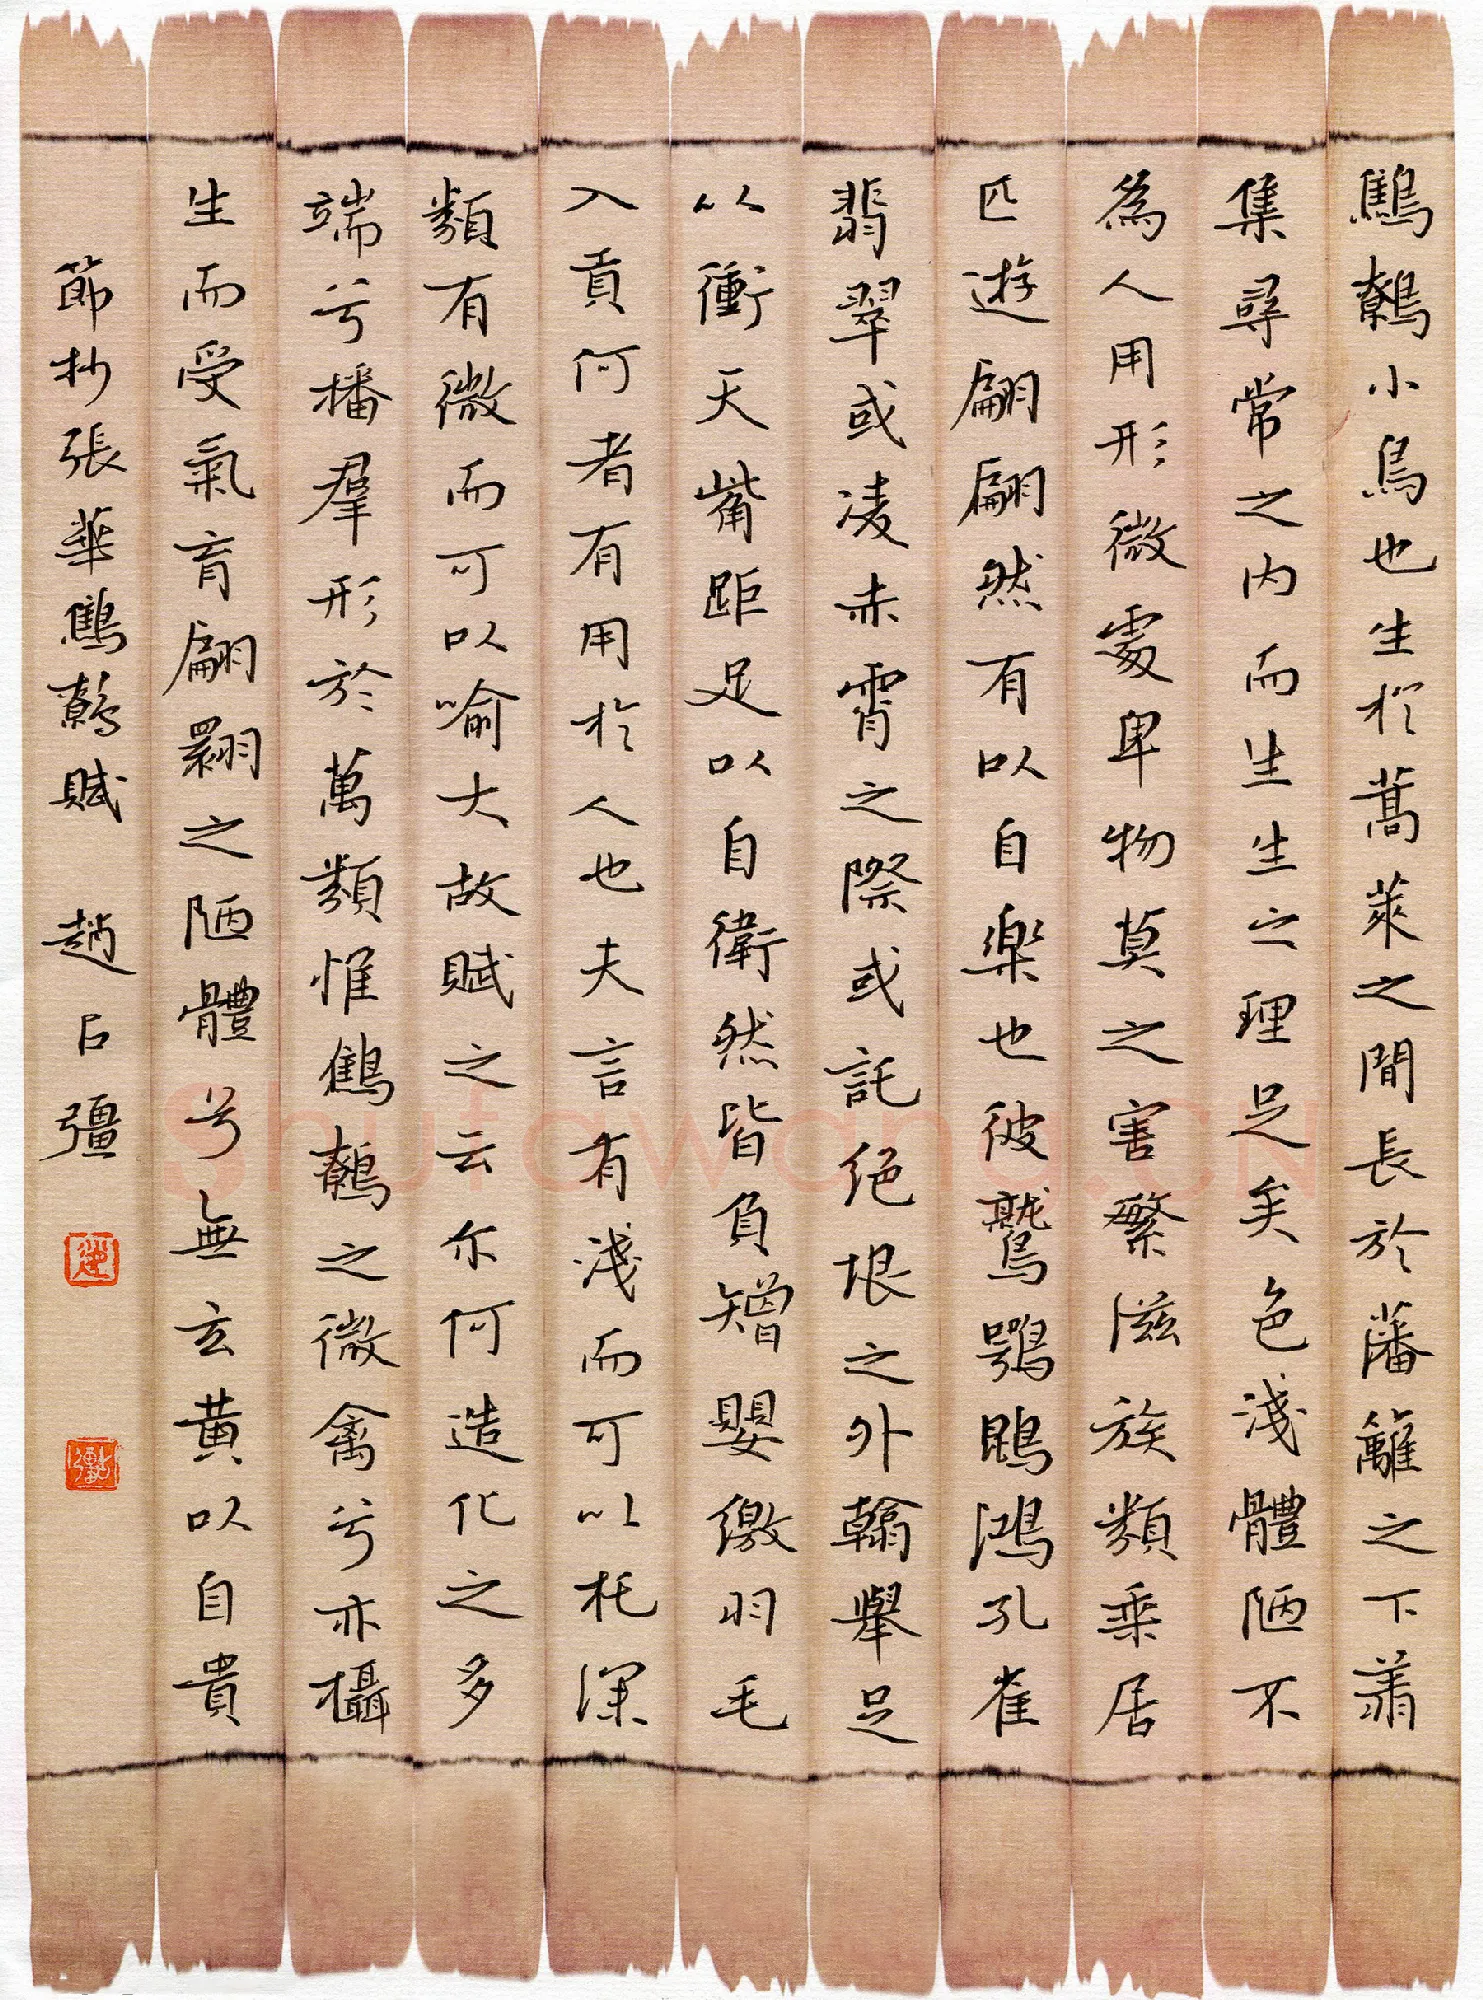 鷦鷯小鳥也生於蒿萊之間長於藩籬之下翔
集尋常之內而生生之理足矣色淺體陋不
為人用形微處卑物莫之害繁滋族類乘居
匹遊翩翩然有以自樂也彼鷲鶚鵾鴻孔雀
翡翠或凌赤霄之際或託絕垠之外翰舉足
以衝天觜距足以自衛然皆負矰嬰繳羽毛
入貢何者有用於人也夫言有淺而可以托深
類有微而可以喻大故賦之云尔何造化之多
端兮播群形於萬類惟鷦鷯之微禽兮亦攝
生而受氣育翩翾之陋體兮無玄黃以自貴
節抄張華鷦鷯賦 趙占彊
Shufawang.CN